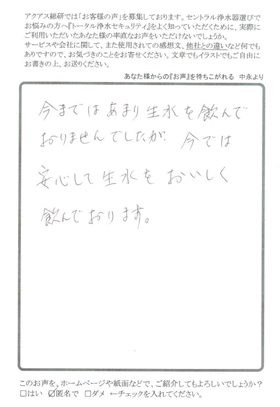 アクアス総研では「お客様の声」を募集しております。セントラル浄水器選びで
お悩みの方へ『トータル浄水セキュリティ』をよく知っていただくために、実際に
ご利用いただいたあなた様の率直なお声をいただけないでしょうか。
サービスや会社に関して、また使用されての感想文、他社との違いなど何でも
ありですので、お気づきのことをお寄せください。文章でもイラストでもご自由に
お書きの上、お送りください。
あなた様からの『お声』を待ちこがれる 中永より
今まではあまり生水を飲んで
おりませんでしたが、今では
安心して生水をおいしく
飲んでおります。
このお声を、ホームページや紙面などで、ご紹介してもよろしいでしょうか？
□はい ☑匿名で □ダメ ←チェックを入れてください。